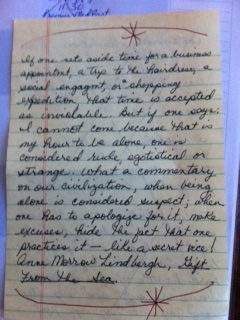 11:30
If one sets aside time for a business
appointment, a trip to the hairdress, a
social engagmt, or shopping
expedition that time is accepted
as inviolable. But if one says:
I cannot come because that is
my hour to be alone, one is
considered rude, egotistical or
strange. What a commentary
on our civilization, when being
alone is considered suspect; when
one has to apologize for it, make
excuses, hide the fact that one
practices it — like a secret vice!
Anne Morrow Lindbergh, Gift
From the Sea.